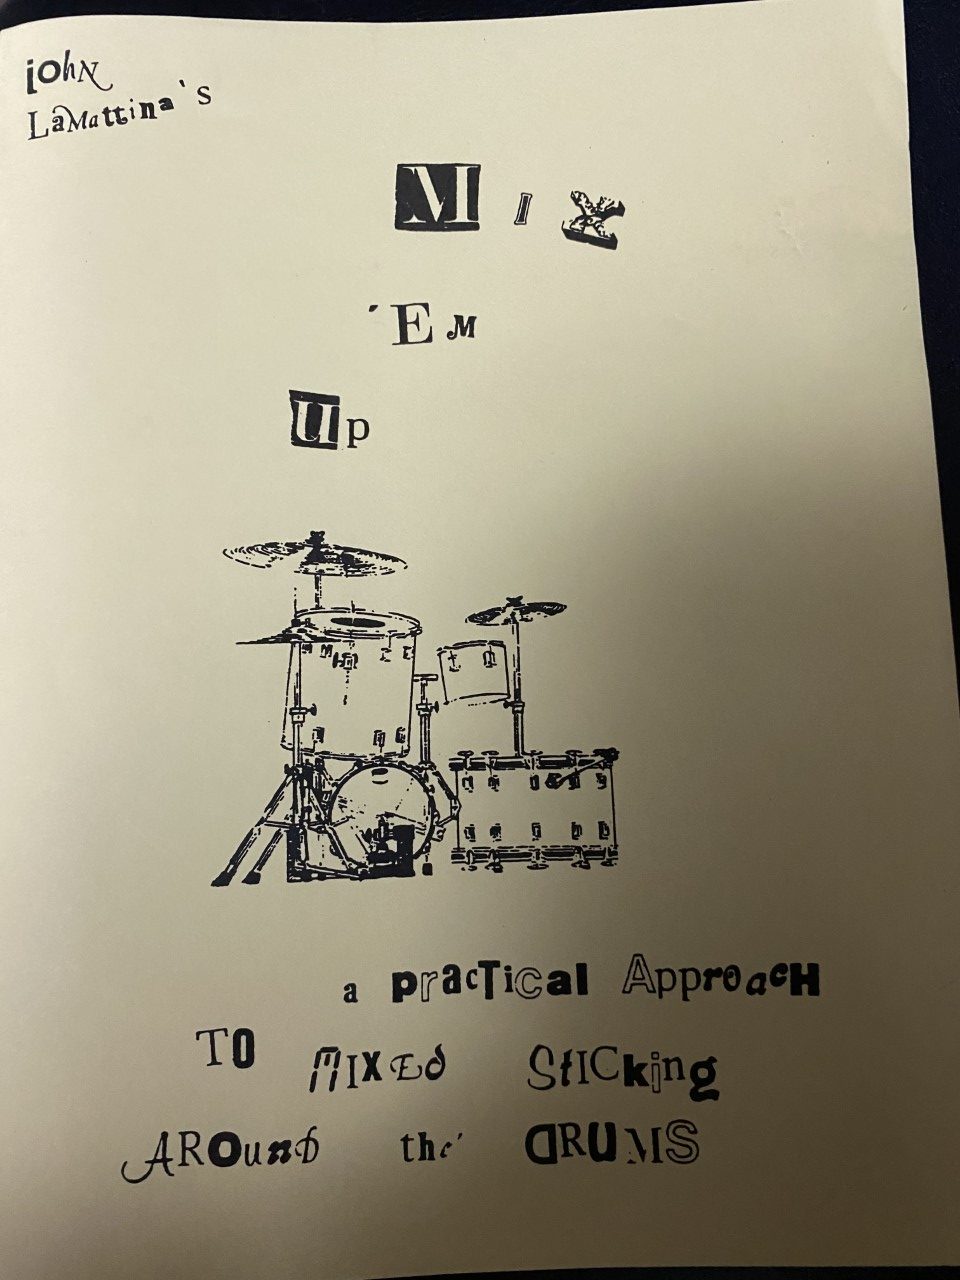 John
LaMattina's
MIX
'EM
Up
a pracTiCal ApproacH
TO MIXEd StICking
AROunD the' DRUMS